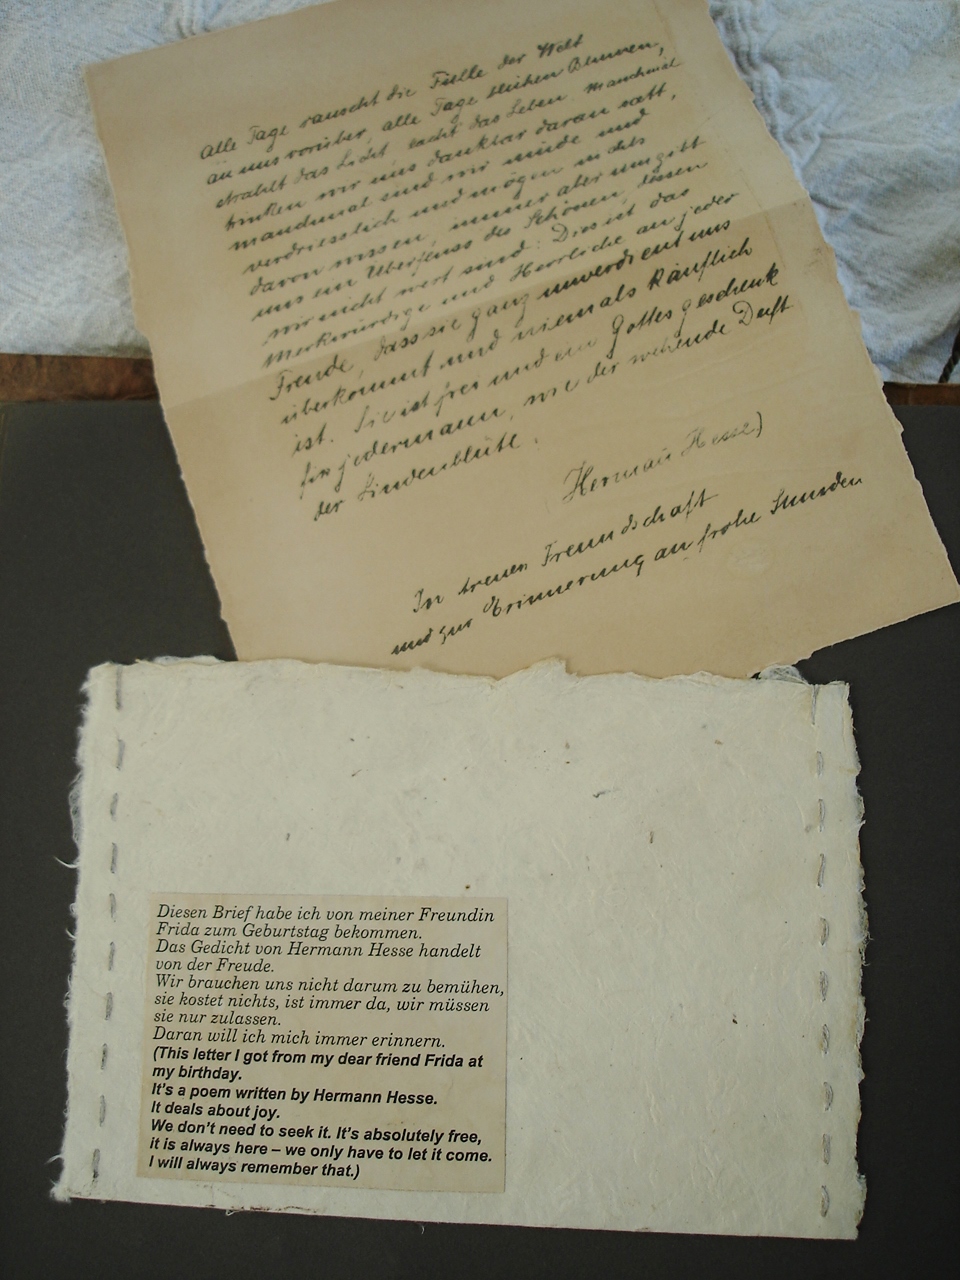 Alle Tage rauscht die Fülle der Welt
an uns vorüber, alle Tage blühen Blumen,
strahlt das Licht, lacht das Leben. Manchmal
trinken wir uns dankbar daran satt,
manchmal sind wir müde und
verdriesslich und mögen nichts
davon wissen, immer aber umgibt
uns ein Überfluss des Schönen, dessen
wir nicht wert sind. Dies ist das
Merkwürdige und Herrliche an jeder
Freude, dass sie ganz unverdient uns
überkommt und niemals käuflich
ist. Sie ist frei und ein Gottesgeschenk
für jedermann, wie der wehende Duft
der Lindenblüte.
Hermann Hesse)
In treuer Freundschaft
und zur Erinnerung an frohe Stunden
Diesen Brief habe ich von meiner Freundin
Frida zum Geburtstag bekommen.
Das Gedicht von Hermann Hesse handelt
von der Freude.
Wir brauchen uns nicht darum zu bemühen,
sie kostet nichts, ist immer da, wir müssen
sie nur zulassen.
Daran will ich mich immer erinnern.
(This letter I got from my dear friend Frida at
my birthday.
It's a poem written by Hermann Hesse.
It deals about joy.
We don't need to seek it. It's absolutely free,
it is always here – we only have to let it come.
I will always remember that.)